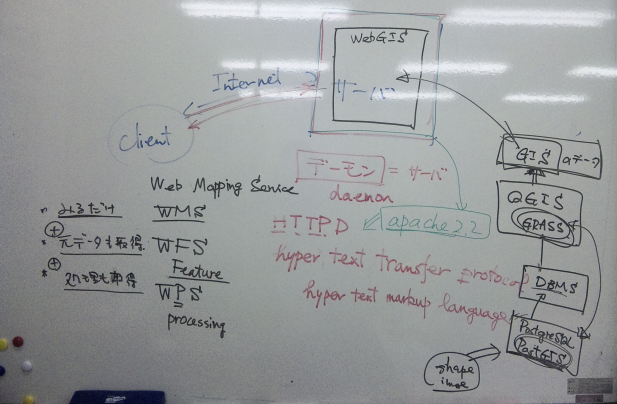 WebGIS
Internet
サーバ
client
GISのデータ
デーモン = サーバ
daemon
QGIS
GRASS
Web Mapping Service
みるだけ
WMS
HTTPD
apache2.2
元データも取得
WFS
Feature
hyper text transfer protocol
DBMS
処理も取得
WPS
hyper text markup language
processing
PostgreSQL
PostGIS
shape